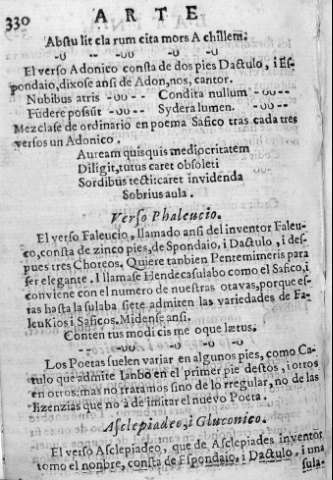 330 ARTE
Abstulit cla rum cita mors A chillem:
-u -- -uu -u -u
El verso Adonico consta de dos pies Dactulo, i Es-
pondaio, dixose ansi de Adon, nos, cantor.
Nubibus atris -uu-- Condita nullum -uu--
Fūdere possūt -uu-- Sydera lumen. -uu--
Mezclase de ordinario en poema Safico tras cada tres
versos un Adonico.
Auream quisquis mediocritatem
Diligit, tutus caret obsoleti
Sordibus tecti: caret invidenda
Sobrius aula.
Verso Phaleucio.
El verso Faleucio, llamado ansi del inventor Faleu-
co, consta de zinco pies, de Spondaio, i Dactulo, i des-
pues tres Choreos. Quiere tanbien Pentemimeris para
ser elegante. I llamase Hendecasulabo como el Safico, i
conviene con el numero de nuestras otavas, porque es-
tas hasta la sulaba siete admiten las variedades de Fa-
leuKios i Saficos. Midense ansi.
Conten tus modi cis me oque lætus.
-- -uu -u -u -u
Los Poetas suelen variar en algunos pies, como Ca-
tulo que admite Ianbo en el primer pie destos, i otros
en otros: mas no tratamos sino de lo rregular, no de las
lizenzias que no à de imitar el nuevo Poeta.
Asclepiadeo, i Gluconico.
El verso Asclepiadeo, que de Asclepiades inventor
tomo el nonbre, consta de Espondaio, i Dactulo, i una
sula-